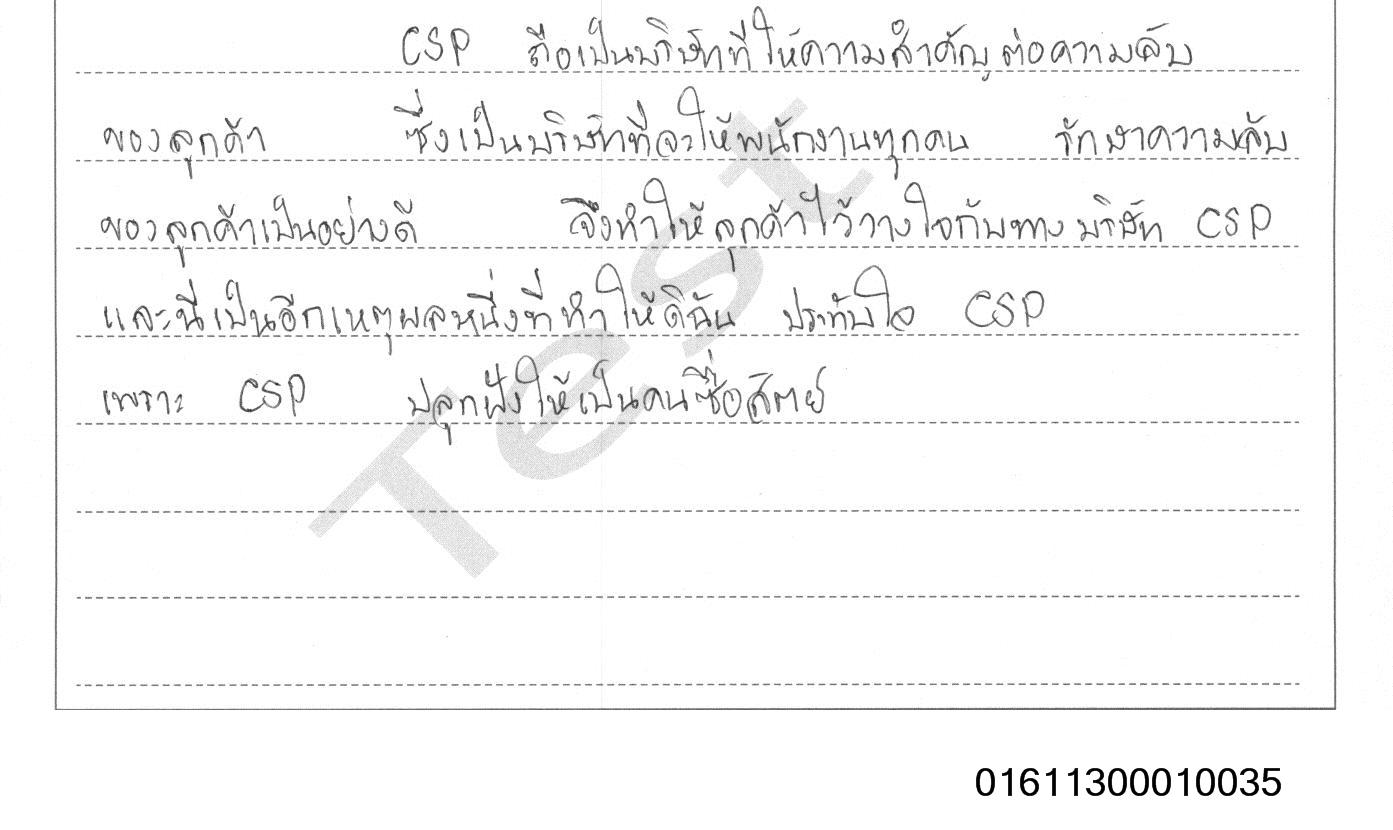 CSP ถือเป็นบริษัทที่ให้ความสำคัญต่อความลับ
ของลูกค้า ซึ่งเป็นบริษัทที่จะให้พนักงานทุกคน รักษาความลับ
ของลูกค้าเป็นอย่างดี จึงทำให้ลูกค้าไว้วางใจกับทางบริษัท CSP
และนี่เป็นอีกเหตุผลหนึ่งที่ทำให้ดิฉัน ประทับใจ CSP
เพราะ CSP ปลูกฝังให้เป็นคนซื่อสัตย์
Test
01611300010035